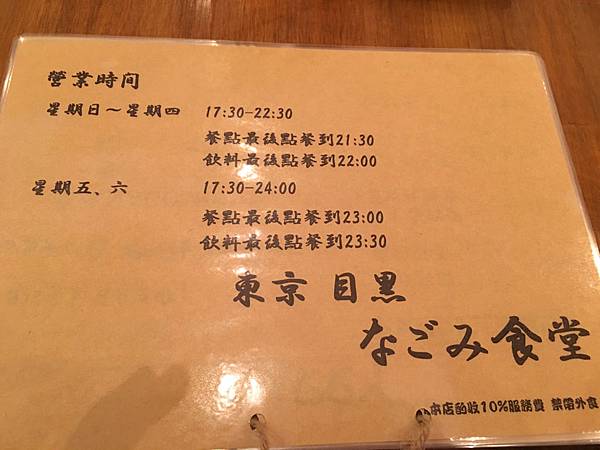 營業時間
星期日～星期四 17:30-22:30
餐點最後點餐到21:30
飲料最後點餐到22:00
星期五、六 17:30-24:00
餐點最後點餐到23:00
飲料最後點餐到23:30
東京 目黒
なごみ食堂
本店酌收10%服務費 禁帶外食